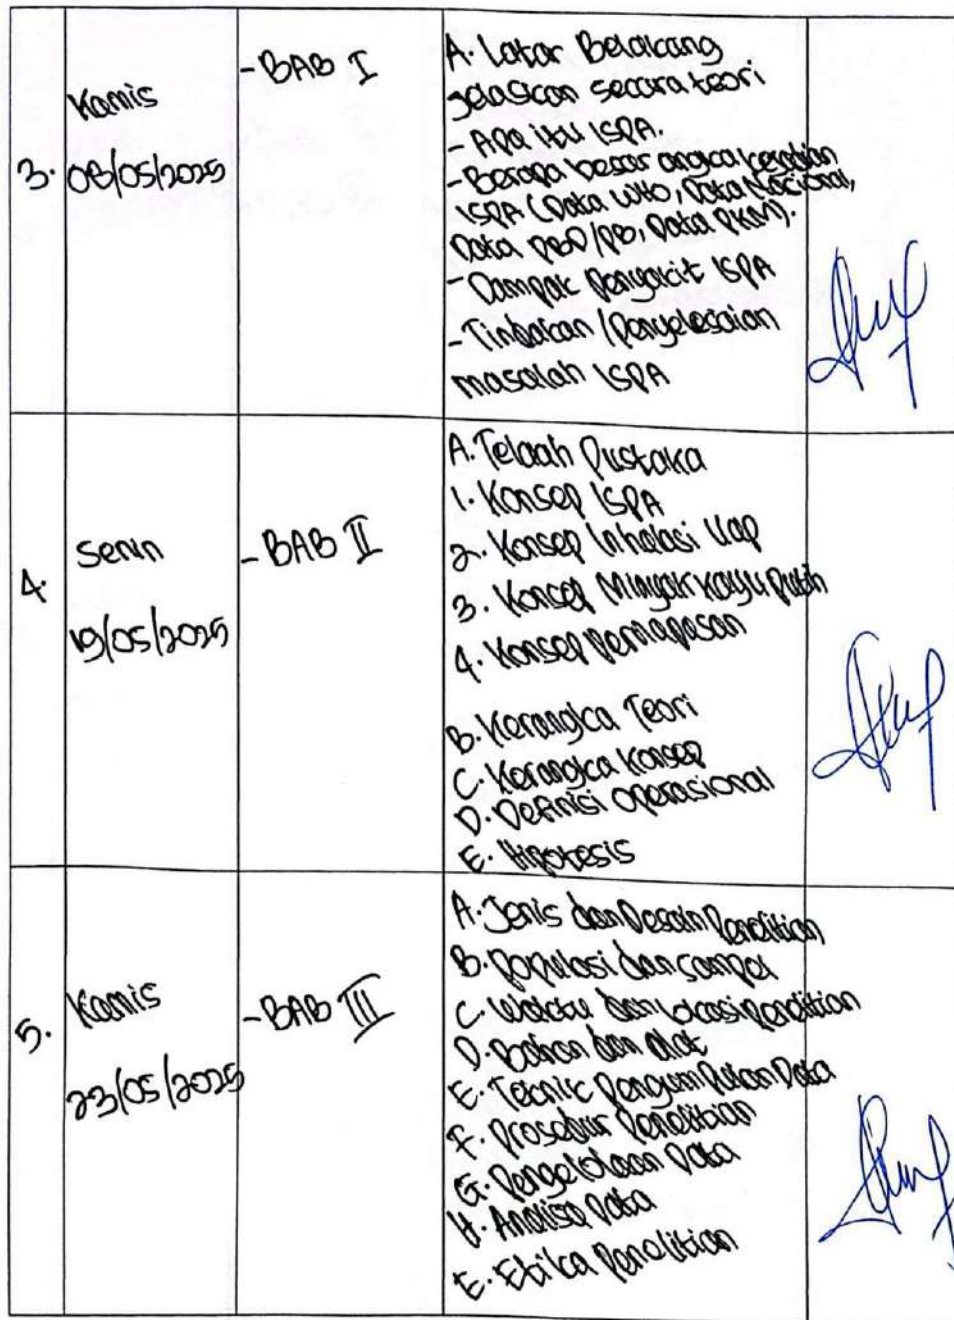 3.
Kamis
08/05/2025
- BAB I
A. Latar Belakang
Jelaskan secara teori
- Apa itu ISPA.
- Berapa besar angka kejadian
ISPA (Data WHO, Data Nasional,
Data PBD/PB, Data PKM).
- Dampak Penyakit ISPA
- Tindakan / Penyelesaian
masalah ISPA
4.
Senin
19/05/2025
- BAB II
A. Telaah Pustaka
1. Konsep ISPA
2. Konsep Inhalasi Uap
3. Konsep Minyak kayu putih
4. Konsep pernapasan
B. Kerangka Teori
C. Kerangka Konsep
D. Definisi Operasional
E. Hipotesis
5.
Kamis
23/05/2025
- BAB III
A. Jenis dan Desain Penelitian
B. Populasi dan sampel
C. Waktu dan Lokasi penelitian
D. Bahan dan alat
E. Teknik Pengumpulan Data
F. Prosedur Penelitian
G. Pengelolaan Data
H. Analisa Data
E. Etika Penelitian